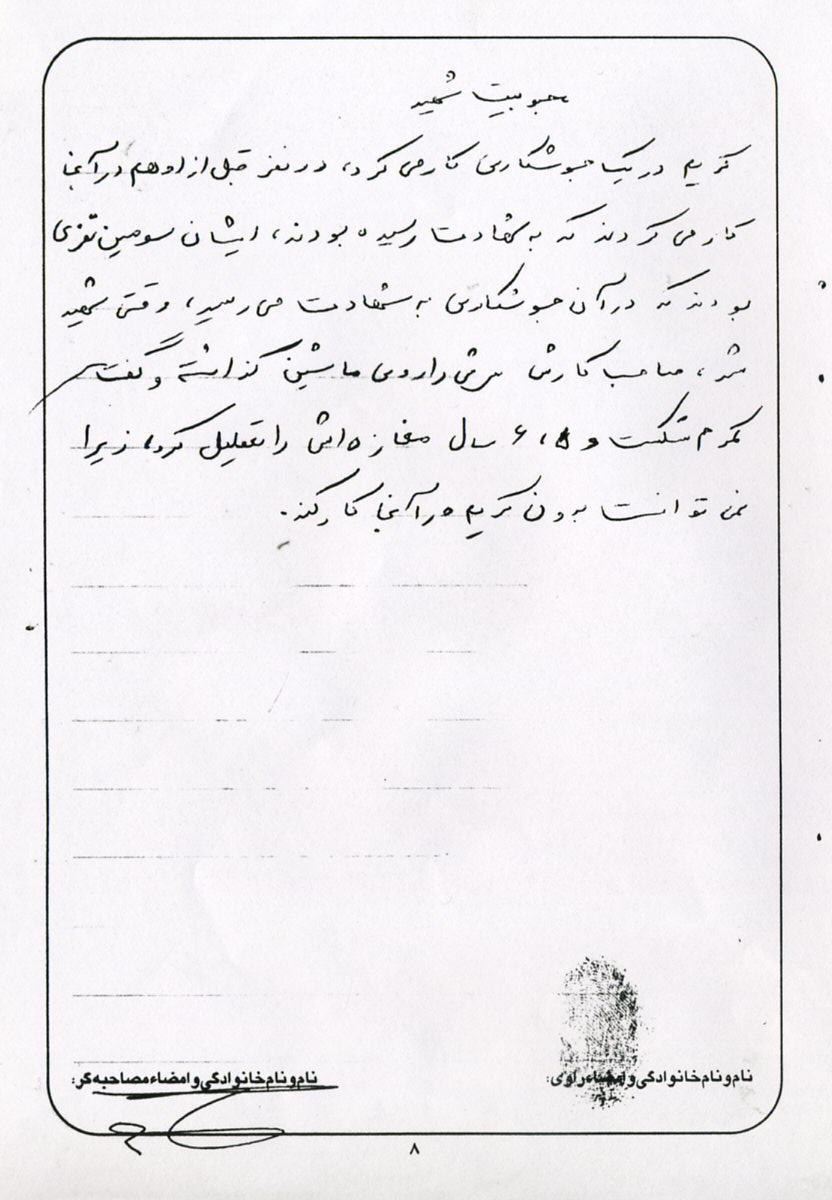 محبوبیت شهید
کریم در یک جوشکاری کار می کرد، دو نفر قبل از او هم در آنجا
کار می کردند که به شهادت رسیده بودند، ایشان سومین نفری
بودند که در آن جوشکاری به شهادت می رسید، وقتی شهید
شد، صاحب کارش سرش را روی ماشین گذاشته و گفت
کمرم شکست و ۵، ۶ سال مغازه اش را تعطیل کرد، زیرا
نمی توانست بدون کریم در آنجا کار کند.
نام و نام خانوادگی و امضاء راوی:
نام و نام خانوادگی و امضاء مصاحبه گر:
۸